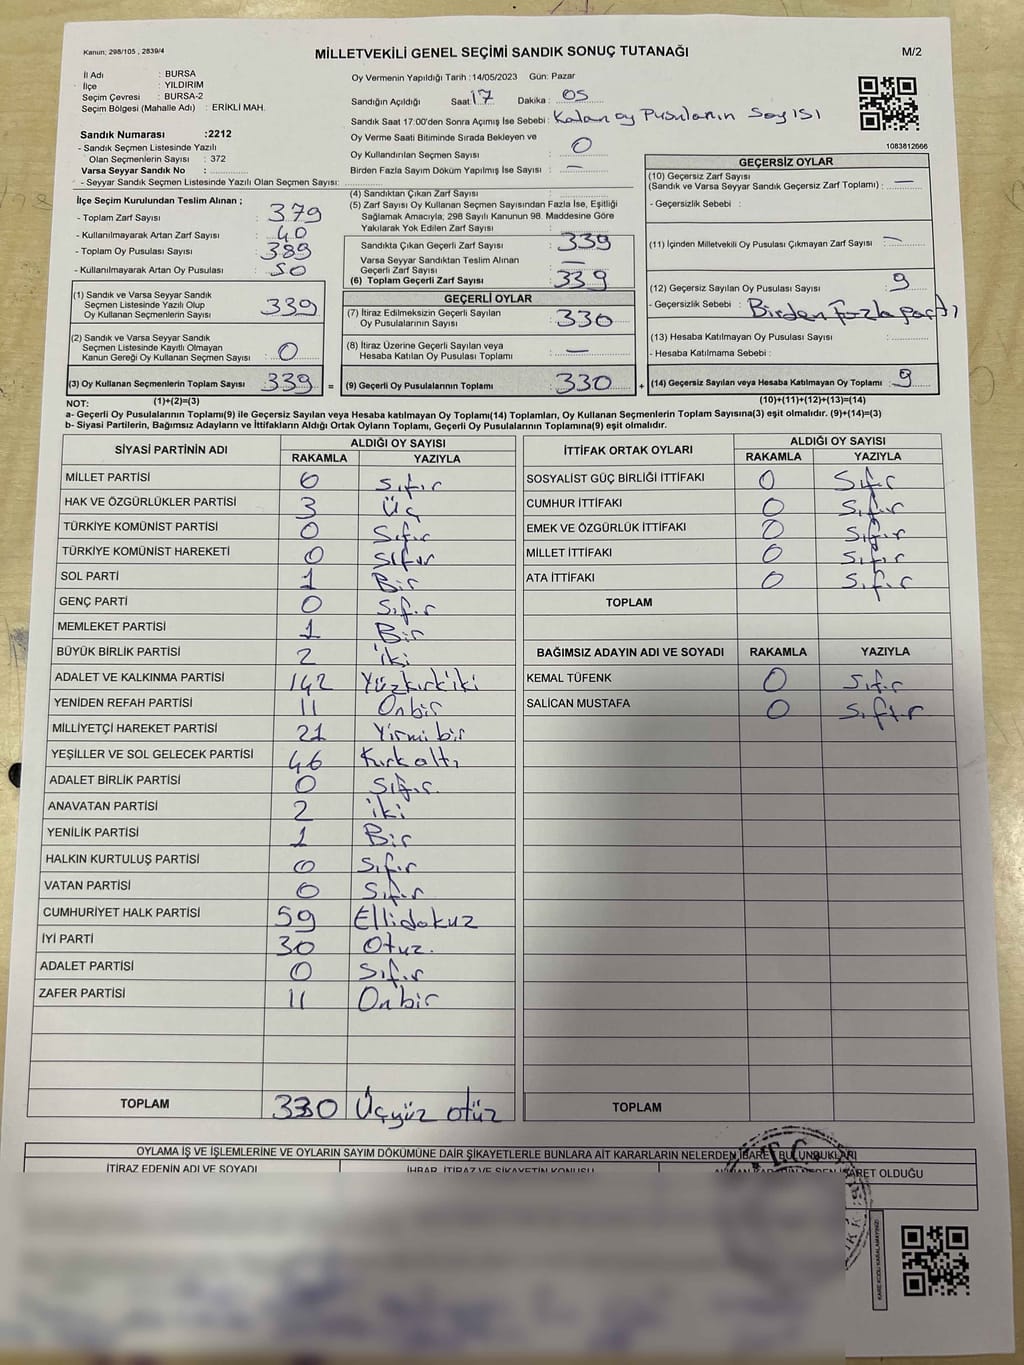 Kanun; 298/105 , 2839/4
MİLLETVEKİLİ GENEL SEÇİMİ SANDIK SONUÇ TUTANAĞI
M/2
İl Adı : BURSA
İlçe : YILDIRIM
Seçim Çevresi : BURSA-2
Seçim Bölgesi (Mahalle Adı) : ERİKLİ MAH.
Sandık Numarası :2212
- Sandık Seçmen Listesinde Yazılı
Olan Seçmenlerin Sayısı : 372
Varsa Seyyar Sandık No :
- Seyyar Sandık Seçmen Listesinde Yazılı Olan Seçmen Sayısı:
Oy Vermenin Yapıldığı Tarih :14/05/2023 Gün: Pazar
Sandığın Açıldığı Saat: 17 Dakika : 05
Sandık Saat 17:00'den Sonra Açımış İse Sebebi : Kalan oy Pusulanın Sayısı
Oy Verme Saati Bitiminde Sırada Bekleyen ve
Oy Kullandırılan Seçmen Sayısı : 0
Birden Fazla Sayım Döküm Yapılmış İse Sayısı : —
1083812666
İlçe Seçim Kurulundan Teslim Alınan ;
- Toplam Zarf Sayısı : 379
- Kullanılmayarak Artan Zarf Sayısı : 40
- Toplam Oy Pusulası Sayısı : 389
- Kullanılmayarak Artan Oy Pusulası : 50
(1) Sandık ve Varsa Seyyar Sandık
Seçmen Listesinde Yazılı Olup
Oy Kullanan Seçmenlerin Sayısı : 339
(2) Sandık ve Varsa Seyyar Sandık
Seçmen Listesinde Kayıtlı Olmayan
Kanun Gereği Oy Kullanan Seçmen Sayısı : 0
(3) Oy Kullanan Seçmenlerin Toplam Sayısı : 339 =
(4) Sandıktan Çıkan Zarf Sayısı :
(5) Zarf Sayısı Oy Kullanan Seçmen Sayısından Fazla İse, Eşitliği
Sağlamak Amacıyla; 298 Sayılı Kanunun 98. Maddesine Göre
Yakılarak Yok Edilen Zarf Sayısı :
Sandıkta Çıkan Geçerli Zarf Sayısı : 339
Varsa Seyyar Sandıktan Teslim Alınan
Geçerli Zarf Sayısı : —
(6) Toplam Geçerli Zarf Sayısı : 339
GEÇERLİ OYLAR
(7) İtiraz Edilmeksizin Geçerli Sayılan
Oy Pusulalarının Sayısı : 330
(8) İtiraz Üzerine Geçerli Sayılan veya
Hesaba Katılan Oy Pusulası Toplamı : —
(9) Geçerli Oy Pusulalarının Toplamı : 330 +
GEÇERSİZ OYLAR
(10) Geçersiz Zarf Sayısı
(Sandık ve Varsa Seyyar Sandık Geçersiz Zarf Toplamı) : —
- Geçersizlik Sebebi :
(11) İçinden Milletvekili Oy Pusulası Çıkmayan Zarf Sayısı : —
(12) Geçersiz Sayılan Oy Pusulası Sayısı : 9
- Geçersizlik Sebebi : Birden Fazla parti
(13) Hesaba Katılmayan Oy Pusulası Sayısı :
- Hesaba Katılmama Sebebi :
(14) Geçersiz Sayılan veya Hesaba Katılmayan Oy Toplamı : 9
NOT: (1)+(2)=(3)
(10)+(11)+(12)+(13)=(14)
a- Geçerli Oy Pusulalarının Toplamı(9) ile Geçersiz Sayılan veya Hesaba katılmayan Oy Toplamı(14) Toplamları, Oy Kullanan Seçmenlerin Toplam Sayısına(3) eşit olmalıdır. (9)+(14)=(3)
b- Siyasi Partilerin, Bağımsız Adayların ve İttifakların Aldığı Ortak Oyların Toplamı, Geçerli Oy Pusulalarının Toplamına(9) eşit olmalıdır.
SİYASİ PARTİNİN ADI ALDIĞI OY SAYISI
RAKAMLA YAZIYLA
MİLLET PARTİSİ 0 Sıfır
HAK VE ÖZGÜRLÜKLER PARTİSİ 3 Üç
TÜRKİYE KOMÜNİST PARTİSİ 0 Sıfır
TÜRKİYE KOMÜNİST HAREKETİ 0 Sıfır
SOL PARTİ 1 Bir
GENÇ PARTİ 0 Sıfır
MEMLEKET PARTİSİ 1 Bir
BÜYÜK BİRLİK PARTİSİ 2 iki
ADALET VE KALKINMA PARTİSİ 142 Yüzkırkiki
YENİDEN REFAH PARTİSİ 11 Onbir
MİLLİYETÇİ HAREKET PARTİSİ 21 Yirmibir
YEŞİLLER VE SOL GELECEK PARTİSİ 46 Kırkaltı
ADALET BİRLİK PARTİSİ 0 Sıfır.
ANAVATAN PARTİSİ 2 iki
YENİLİK PARTİSİ 1 Bir
HALKIN KURTULUŞ PARTİSİ 0 Sıfır
VATAN PARTİSİ 0 Sıfır
CUMHURİYET HALK PARTİSİ 59 Ellidokuz
İYİ PARTİ 30 Otuz.
ADALET PARTİSİ 0 Sıfır
ZAFER PARTİSİ 11 Onbir
TOPLAM 330 Üçyüz otüz
İTTİFAK ORTAK OYLARI ALDIĞI OY SAYISI
RAKAMLA YAZIYLA
SOSYALİST GÜÇ BİRLİĞİ İTTİFAKI 0 Sıfır
CUMHUR İTTİFAKI 0 Sıfır
EMEK VE ÖZGÜRLÜK İTTİFAKI 0 Sıfır
MİLLET İTTİFAKI 0 Sıfır
ATA İTTİFAKI 0 Sıfır
TOPLAM
BAĞIMSIZ ADAYIN ADI VE SOYADI RAKAMLA YAZIYLA
KEMAL TÜFENK 0 Sıfır
SALİCAN MUSTAFA 0 Sıfır
TOPLAM
OYLAMA İŞ VE İŞLEMLERİNE VE OYLARIN SAYIM DÖKÜMÜNE DAİR ŞİKAYETLERLE BUNLARA AİT KARARLARIN NELERDEN İBARET BULUNDUKLARI
İTİRAZ EDENİN ADI VE SOYADI İHBAR, İTİRAZ VE ŞİKAYETİN KONUSU ALINAN KARARIN NEDEN İBARET OLDUĞU
T.C.
KARE KODU KARALAMAYINIZ!